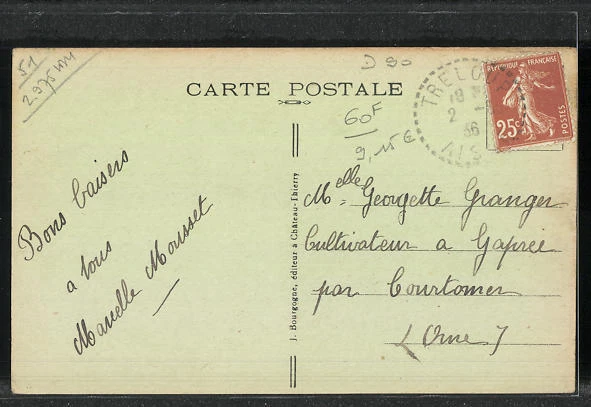 51
D 90
CARTE POSTALE
60F
9,15€
TRELOU
18
2
36
AISNE
REPUBLIQUE FRANÇAISE
25c
POSTES
Bons baisers
a tous
Marcelle Mousset
J. Bourgogne, éditeur à Château-Thierry
Melle Georgette Granger
Cultivateur a Gaprée
par Courtomer
(Orne)